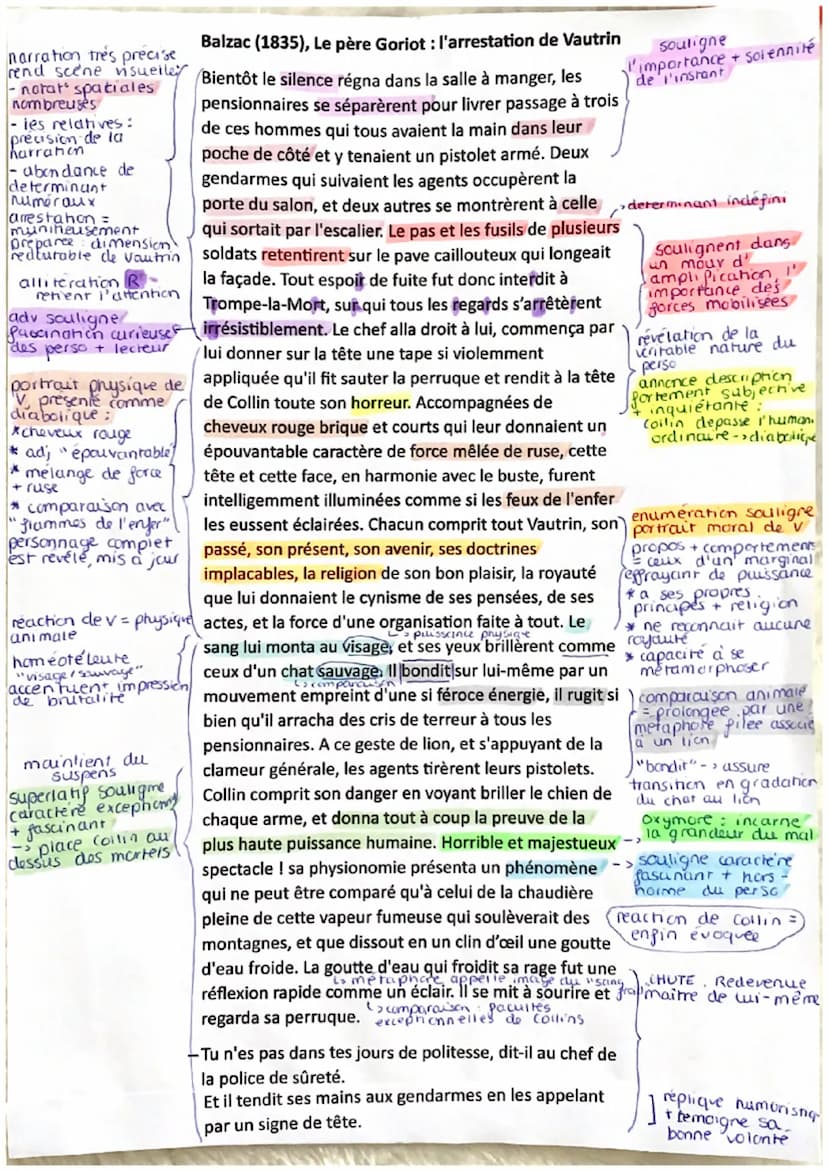 Balzac (1835), Le père Goriot : l'arrestation de Vautrin
narration très précise
rend scène visuelle
- notat° spatiales
nombreuses
- les relatives :
précision de la
narration
- abondance de
determinant
numéraux
arrestation =
préparée : dimension
redoutable de Vautrin
allitération R
retient l'attention
adv souligne
fascination curieuse
des perso + lecteur
portrait physique de
V, présenté comme
diabolique :
*cheveux rouge
* adj "épouvantable"
* mélange de force
+ ruse
* comparaison avec
"flammes de l'enfer"
personnage complet
est révélé, mis à jour
réaction de V = physique
animale
homéotéleute
"visage/sauvage"
accentuent impression
de brutalité
maintient du
suspens
superlatif souligne
caractère exceptionn
+ fascinant
-> place Collin au
dessus des mortels
Bientôt le silence régna dans la salle à manger, les
pensionnaires se séparèrent pour livrer passage à trois
de ces hommes qui tous avaient la main dans leur
poche de côté et y tenaient un pistolet armé. Deux
gendarmes qui suivaient les agents occupèrent la
porte du salon, et deux autres se montrèrent à celle
qui sortait par l'escalier. Le pas et les fusils de plusieurs
soldats retentirent sur le pave caillouteux qui longeait
la façade. Tout espoir de fuite fut donc interdit à
Trompe-la-Mort, sur qui tous les regards s'arrêtèrent
irrésistiblement. Le chef alla droit à lui, commença par
lui donner sur la tête une tape si violemment
appliquée qu'il fit sauter la perruque et rendit à la tête
de Collin toute son horreur. Accompagnées de
cheveux rouge brique et courts qui leur donnaient un
épouvantable caractère de force mêlée de ruse, cette
tête et cette face, en harmonie avec le buste, furent
intelligemment illuminées comme si les feux de l'enfer
les eussent éclairées. Chacun comprit tout Vautrin, son
passé, son présent, son avenir, ses doctrines
implacables, la religion de son bon plaisir, la royauté
que lui donnaient le cynisme de ses pensées, de ses
actes, et la force d'une organisation faite à tout. Le
-> puissance physique
sang lui monta au visage, et ses yeux brillèrent comme
ceux d'un chat sauvage. Il bondit sur lui-même par un
-> comparaison
mouvement empreint d'une si féroce énergie, il rugit si
bien qu'il arracha des cris de terreur à tous les
pensionnaires. A ce geste de lion, et s'appuyant de la
clameur générale, les agents tirèrent leurs pistolets.
Collin comprit son danger en voyant briller le chien de
chaque arme, et donna tout à coup la preuve de la
plus haute puissance humaine. Horrible et majestueux
spectacle ! sa physionomie présenta un phénomène
qui ne peut être comparé qu'à celui de la chaudière
pleine de cette vapeur fumeuse qui soulèverait des
montagnes, et que dissout en un clin d'œil une goutte
d'eau froide. La goutte d'eau qui froidit sa rage fut une
-> métaphore appelle image du "sang
réflexion rapide comme un éclair. Il se mit à sourire et
regarda sa perruque.
-> comparaison : facultés
exceptionnelles de Collins
–Tu n'es pas dans tes jours de politesse, dit-il au chef de
la police de sûreté.
Et il tendit ses mains aux gendarmes en les appelant
par un signe de tête.
souligne
l'importance + solennité
de l'instant
-> determinant indéfini
soulignent dans
un mouv d'
amplification l'
importance des
forces mobilisées
révélation de la
véritable nature du
perso
annonce description
fortement subjective
+ inquiétante :
Collin depasse l'humani
ordinaire -> diabolique
enumération souligne
portrait moral de V
propos + comportement
= ceux d'un marginal
effrayant de puissance
*a ses propres
principes + religion
* ne reconnait aucune
royauté
* capacité à se
métamorphoser
comparaison animale
= prolongée par une
métaphore filée associé
à un lion
"bondit" -> assure
transition en gradation
du chat au lion
-> oxymore : incarne
la grandeur du mal
-> souligne caractère
fascinant + hors-
norme du perso
réaction de Collin =
enfin évoquée
CHUTE. Redevenue
maître de lui-même
réplique humoristiq
+ temoigne sa
bonne volonté